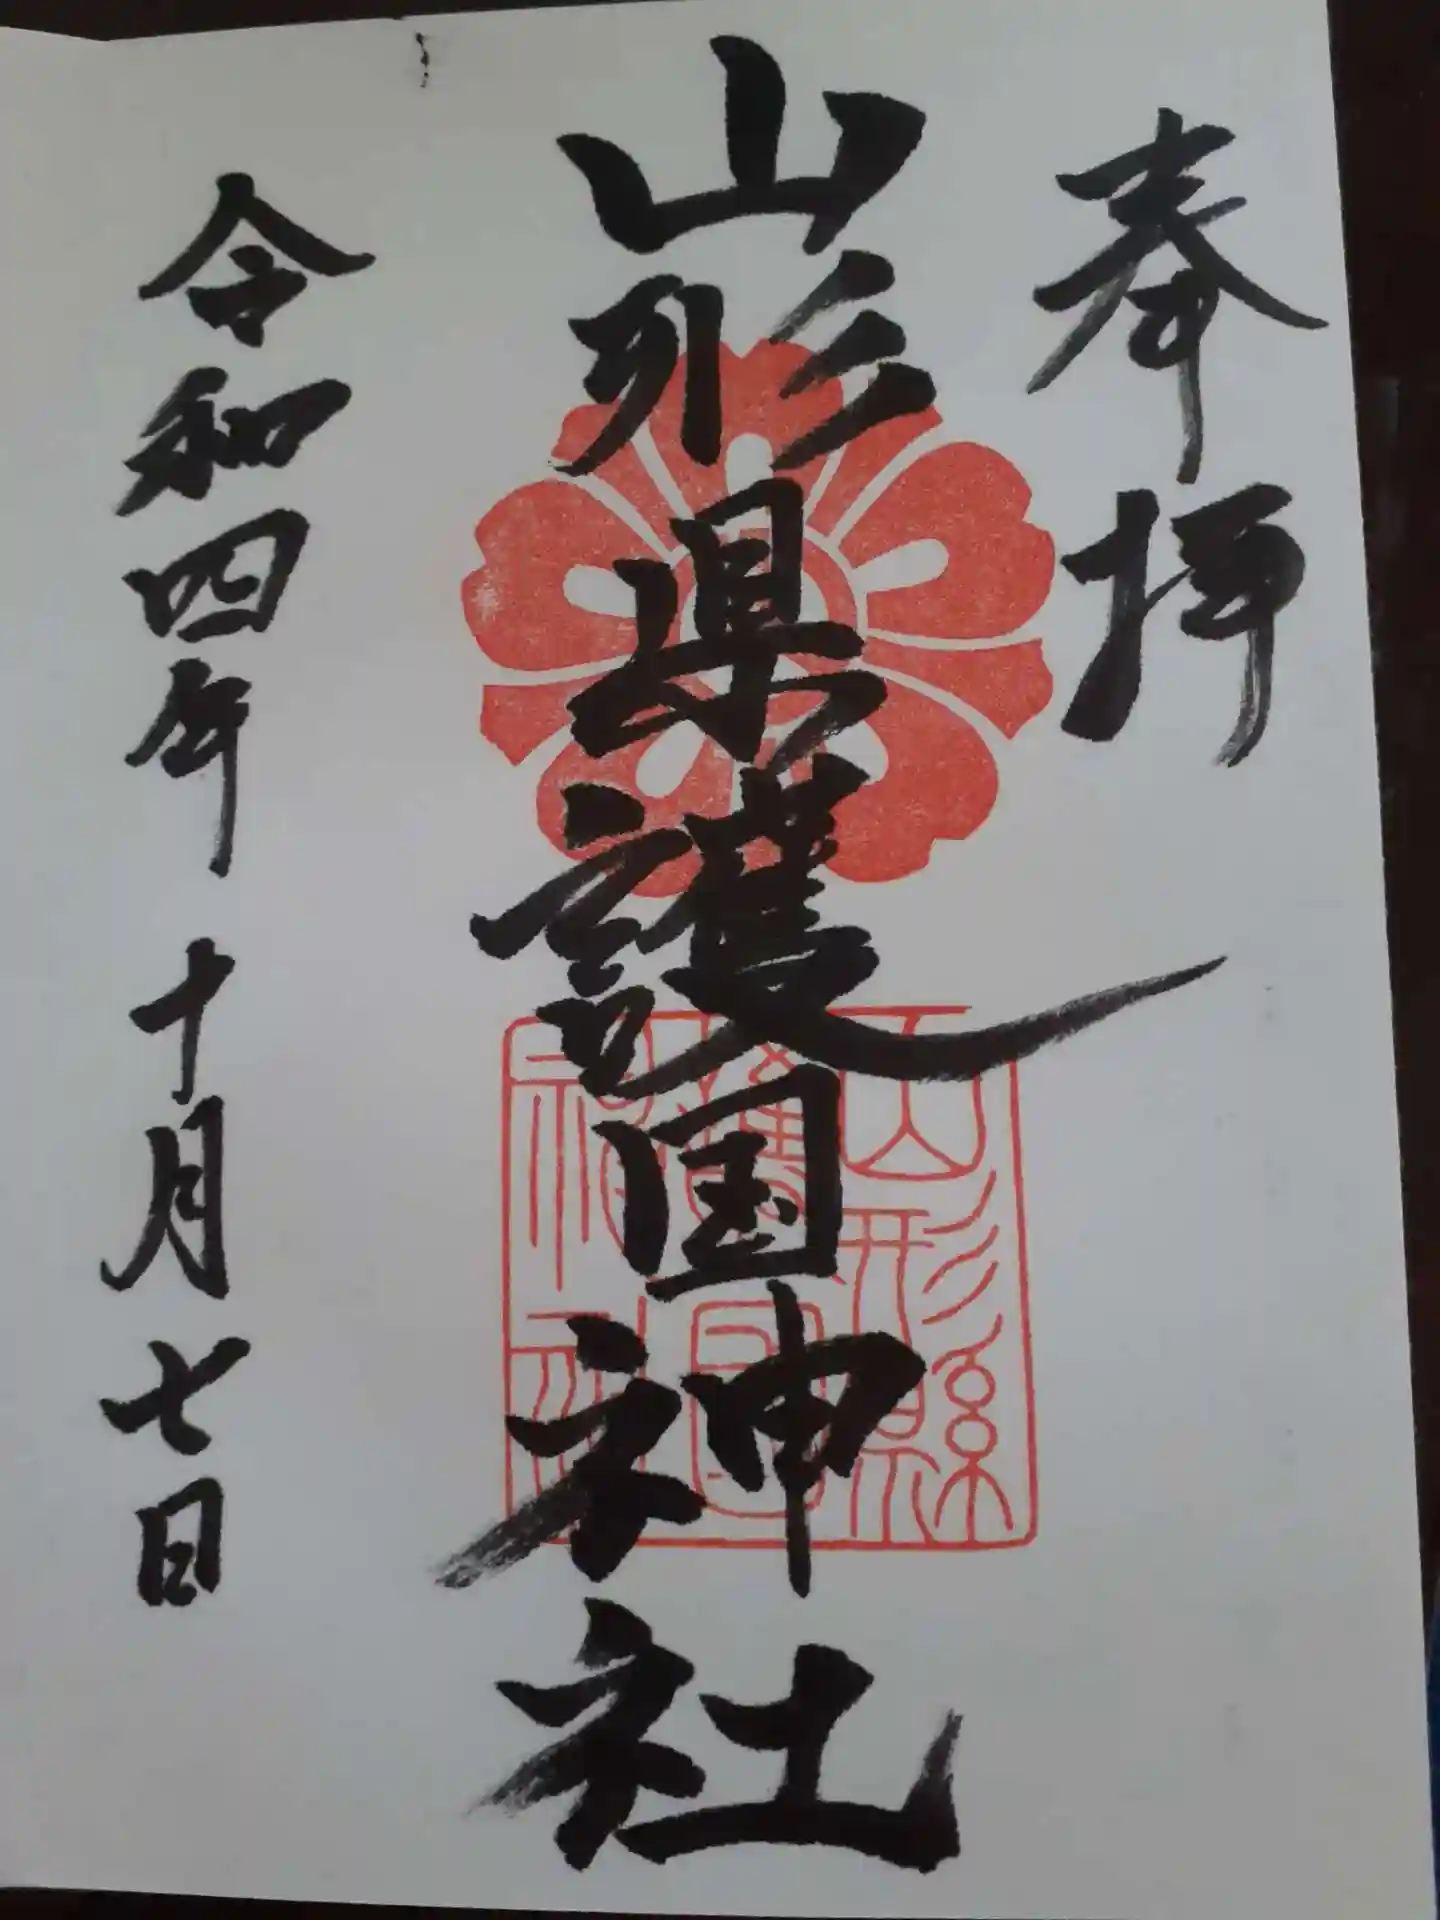 奉拝
山形県護国神社
令和四年十月七日
山形縣
護國
神社